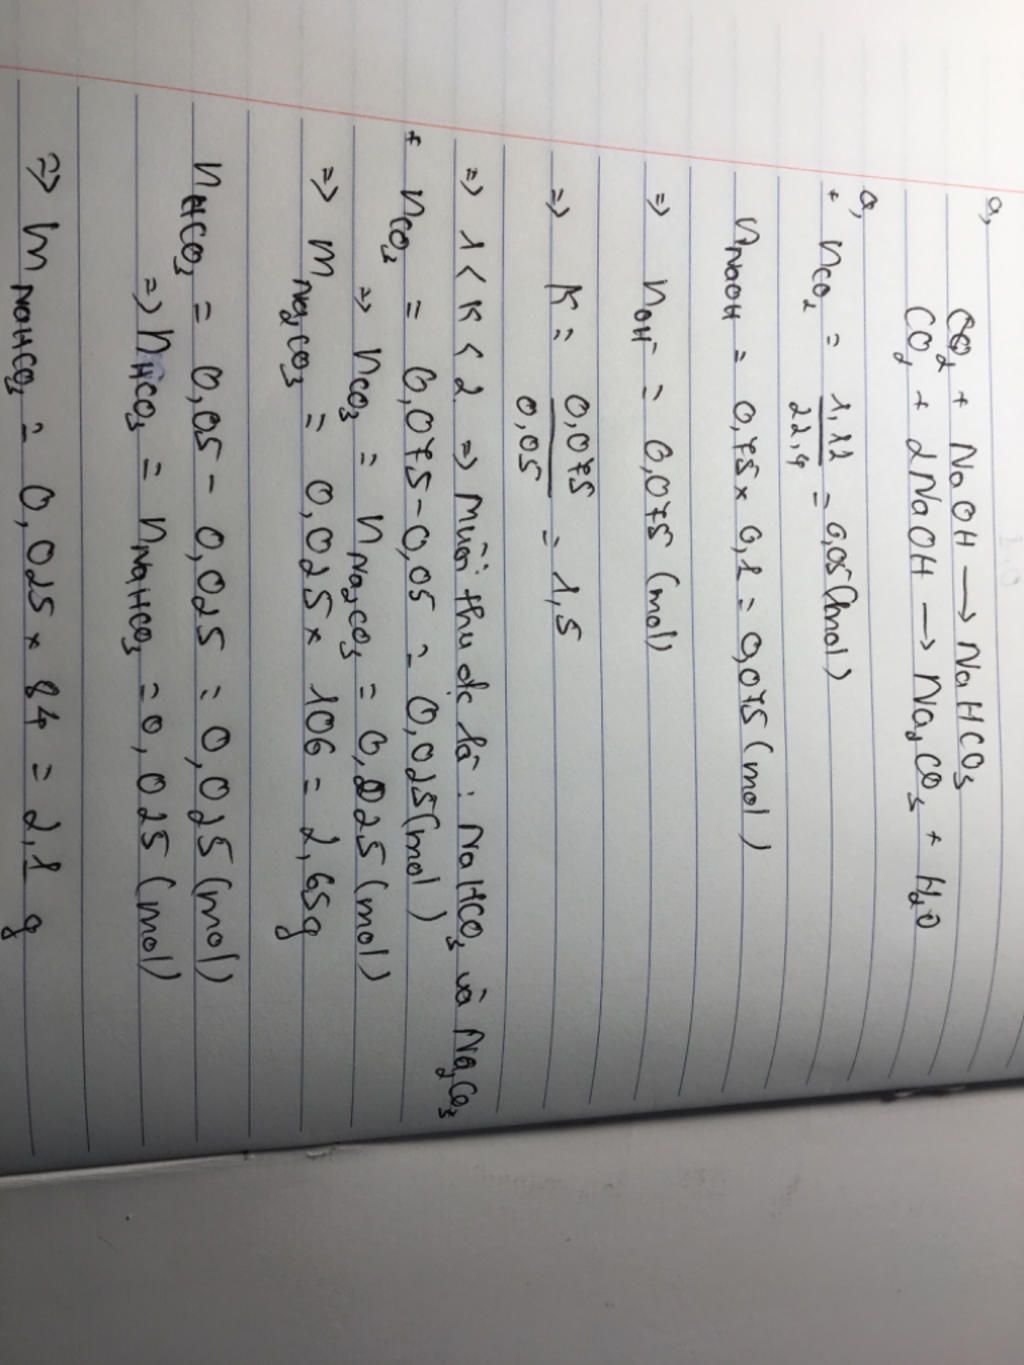 a, CO₂ + NaOH → NaHCO₃
CO₂ + 2NaOH → Na₂CO₃ + H₂O
a,
+ nCO₂ = 1,12/22,4 = 0,05 (mol)
nNaOH = 0,75 × 0,1 = 0,075 (mol)
=> nOH⁻ = 0,075 (mol)
=> K = 0,075/0,05 = 1,5
=> 1 < K < 2 => Muối thu đc là : NaHCO₃ và Na₂CO₃
+ nCO₃ = 0,075 - 0,05 = 0,025 (mol)
=> nCO₃ = nNa₂CO₃ = 0,025 (mol)
=> mNa₂CO₃ = 0,025 × 106 = 2,65g
nHCO₃ = 0,05 - 0,025 = 0,025 (mol)
=> nHCO₃ = nNaHCO₃ = 0,025 (mol)
=> mNaHCO₃ = 0,025 × 84 = 2,1 g